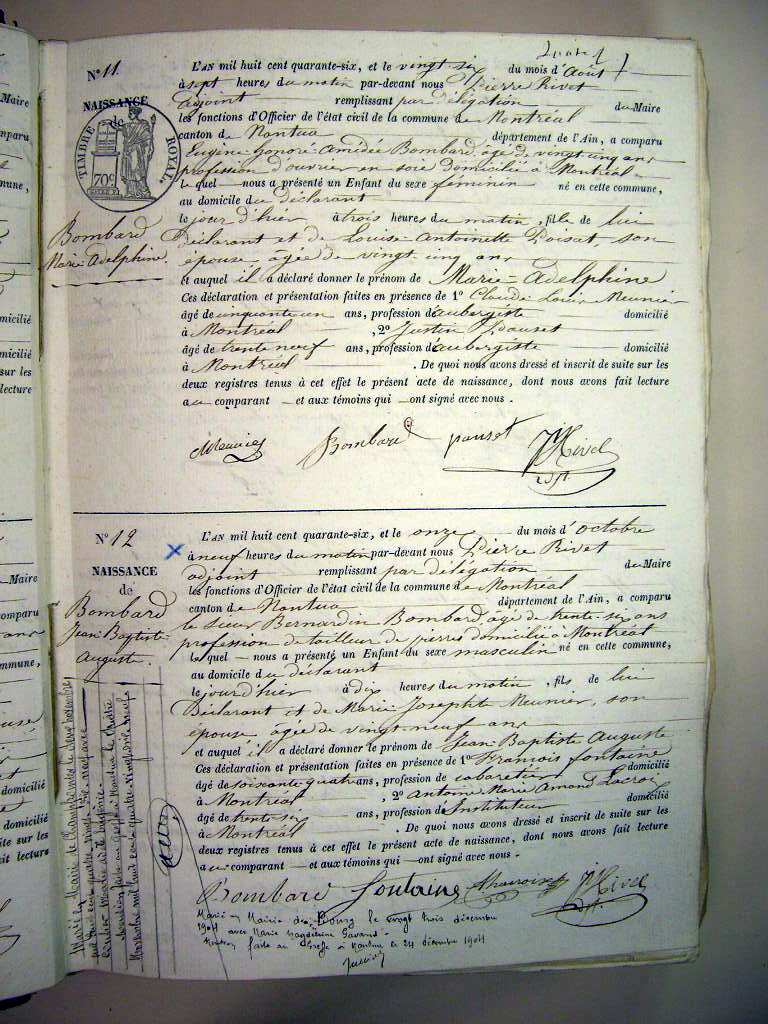 N° 11
NAISSANCE
de
TIMBRE ROYAL.
70c
Bombard
Marie Adelphine.
L'AN mil huit cent quarante-six, et le vingt six du mois d'Août
à sept heures du matin par-devant nous Pierre Rivet
adjoint remplissant par délégation du Maire
les fonctions d'Officier de l'état civil de la commune de Montréal
canton de Nantua département de l'Ain, a comparu
Eugène Honoré Amédée Bombard, âgé de vingt cinq ans
profession d'ouvrier en soie domicilié à Montréal
lequel nous a présenté un Enfant du sexe féminin né en cette commune,
au domicile du déclarant
le jour d'hier à trois heures du matin, fille de lui
Déclarant et de Louise Antoinette Poisat, son
épouse âgée de vingt cinq ans
et auquel il a déclaré donner le prénom de Marie-Adelphine
Ces déclaration et présentation faites en présence de 1° Claude Louis Meunier
âgé de cinquante un ans, profession d'aubergiste domicilié
à Montréal, 2° Justin Pauset
âgé de trente neuf ans, profession d'aubergiste domicilié
à Montréal. De quoi nous avons dressé et inscrit de suite sur les
deux registres tenus à cet effet le présent acte de naissance, dont nous avons fait lecture
au comparant et aux témoins qui ont signé avec nous.
Meunier Bombard pauset Rivet
N° 12
NAISSANCE
de
Bombard
Jean Baptiste
Auguste.
L'AN mil huit cent quarante-six, et le onze du mois d'octobre
à neuf heures du matin par-devant nous Pierre Rivet
adjoint remplissant par délégation du Maire
les fonctions d'Officier de l'état civil de la commune de Montréal
canton de Nantua département de l'Ain, a comparu
le sieur Bernardin Bombard, âgé de trente-six ans
profession de tailleur de pierres domicilié à Montréal
lequel nous a présenté un Enfant du sexe masculin né en cette commune,
au domicile du déclarant
le jour d'hier à dix heures du matin, fils de lui
Déclarant et de Marie Josephte Meunier, son
épouse âgée de vingt neuf ans
et auquel il a déclaré donner le prénom de Jean Baptiste Auguste
Ces déclaration et présentation faites en présence de 1° François fontaine
âgé de soixante quatre ans, profession de cabaretier domicilié
à Montréal, 2° Antoine Marie Amand Lacroix
âgé de trente six ans, profession d'Instituteur domicilié
à Montréal. De quoi nous avons dressé et inscrit de suite sur les
deux registres tenus à cet effet le présent acte de naissance, dont nous avons fait lecture
au comparant et aux témoins qui ont signé avec nous.
Bombard fontaine Rivet
Marié en Mairie de Bourg le vingt trois décembre
1904 avec Marie Magdeleine Gavand
Mention faite au Greffe à Nantua le 24 décembre 1904